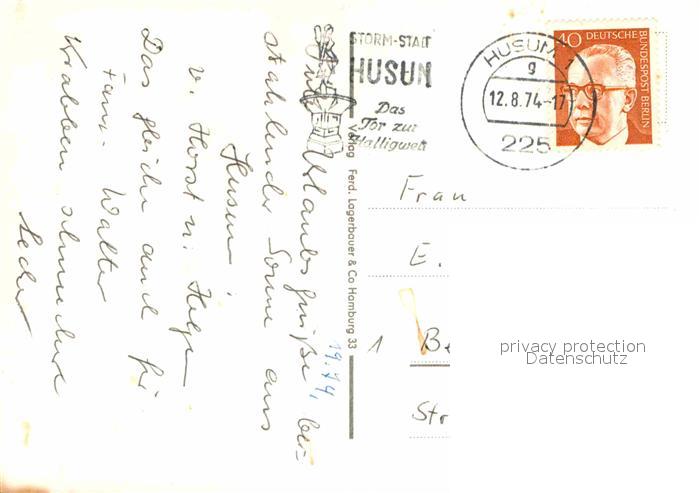 Urlaubsgrüße bei
strahlender Sonne aus
Husum!
v. Horst u. Helga
Das gleiche auch für
Fam. Walter
Krabben schmecken
lecker
STORM-STADT
HUSUM
Das
Tor zur
Halligwelt
HUSUM 1
g
12.8.74-17
225
40 DEUTSCHE
BUNDESPOST BERLIN
Verlag Ferd. Lagerbauer & Co Hamburg 33
1974
Frau
E.
1 Be
Str
privacy protection
Datenschutz